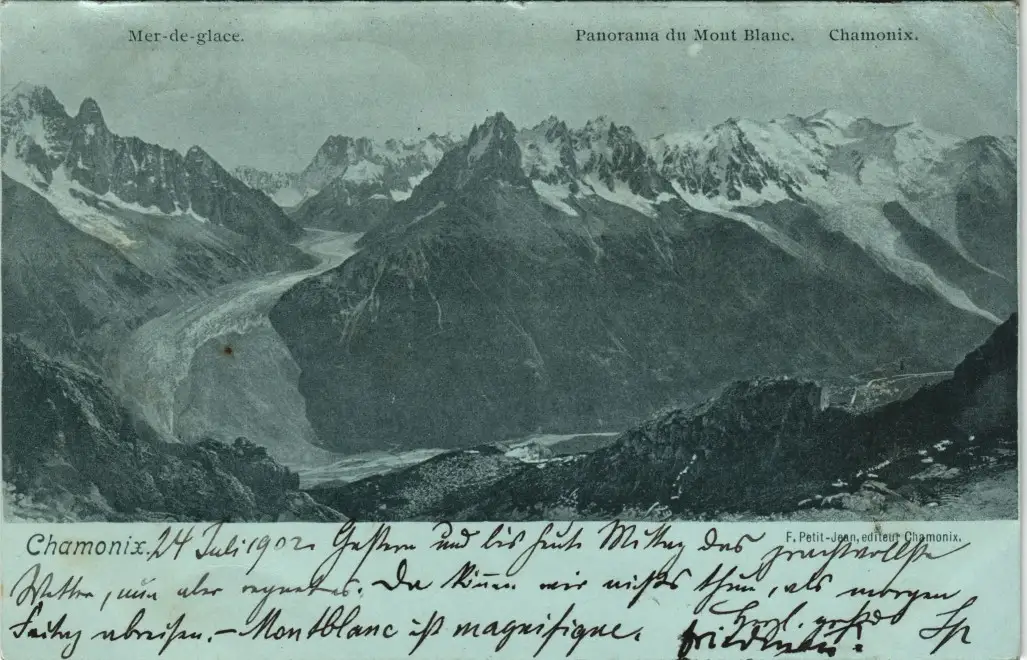 Mer-de-glace.
Panorama du Mont Blanc. Chamonix.
F. Petit-Jean, editeur Chamonix.
Chamonix. 24 Juli 1902. Gestern und bis heute Mittag das prachtvollste
Wetter, nun aber regnet es. Da können wir nichts thun, als morgen
Freitag abreisen. – Montblanc ist magnifique.
Herzl.